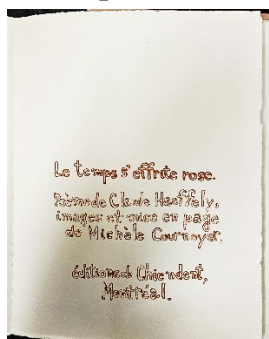 Le temps s'effrite rose.
Poème de Claude Haeffely,
images et mise en page
de Michèle Cournoyer.
éditions du Chiendent,
Montréal.